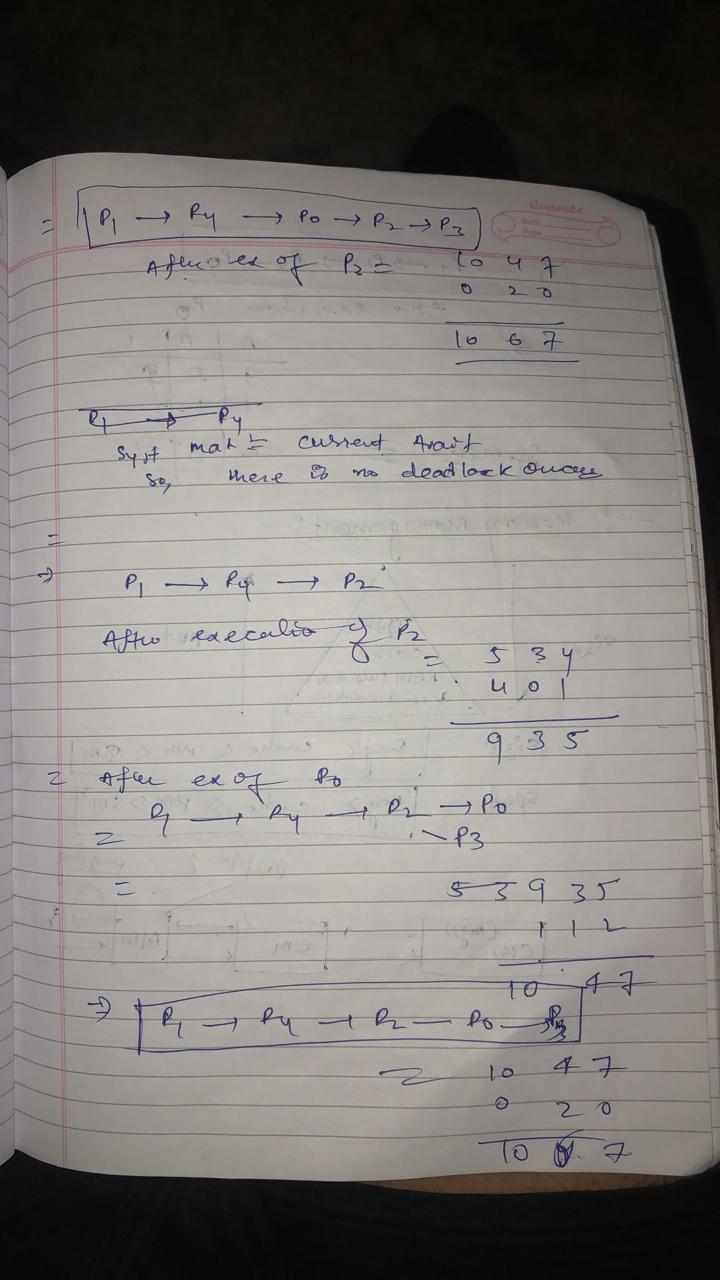 classmate
Date
Page
= P1 → P4 → P0 → P2 → P3
After ex of P2 = 10 4 7
0 2 0
10 6 7
P1 → P4
Syst max = current Avail
So, there is no deadlock
=
⇒ P1 → P4 → P2
After executio of P2
= 5 3 4
4 0 1
9 3 5
= After ex of P0
= P1 → P4 → P2 → P0
P3
= 9 3 5
1 1 2
10 4 7
⇒ P1 → P4 → P2 — P0 → P3
= 10 4 7
0 2 0
10 7